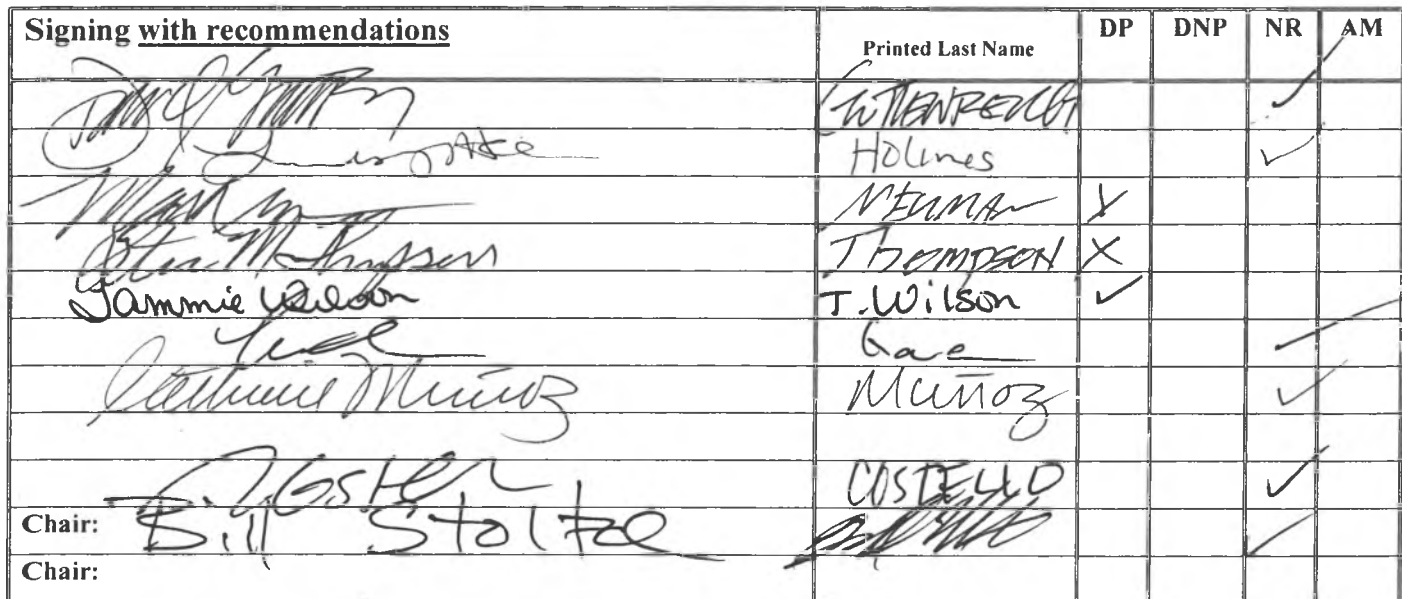 Signing with recommendations Printed Last Name DP DNP NR AM
GUTTENBERG ✓
Holmes ✓
NEUMAN X
Thompson X
Tammie Wilson T. Wilson ✓
Gara ✓
Cathie Muñoz Muñoz ✓
COSTELLO ✓
Chair: Bill Stoltze ✓
Chair: